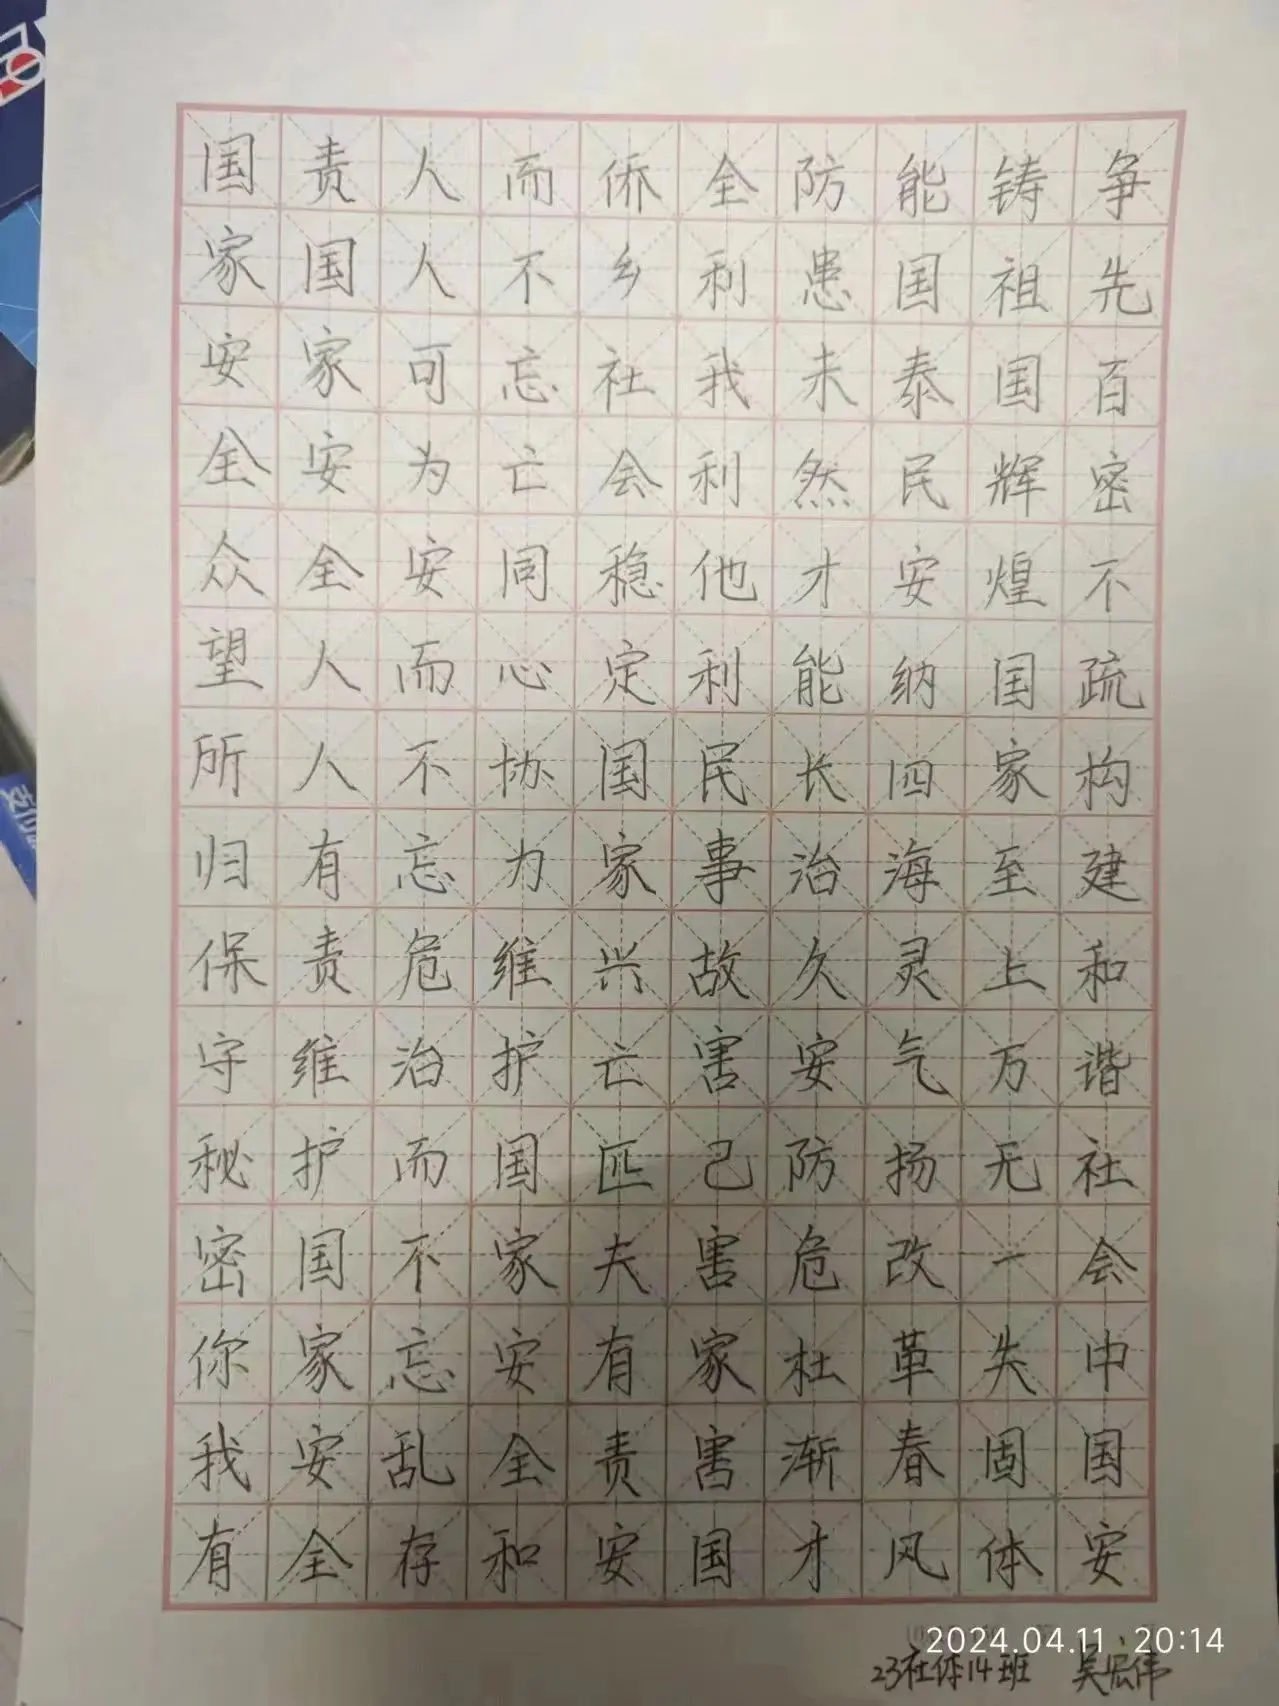 国家安全众望所归保守秘密你我有
责国家安全人人有责维护国家安全
人人可为安而不忘危治而不忘乱存
而不忘亡同心协力维护国家安全和
侨乡社会稳定国家兴亡匹夫有责安
全利我利他利民事故害己害家害国
防患未然才能长治久安防危杜渐才
能国泰民安纳四海灵气扬改革春风
铸祖国辉煌国家至上万无一失固体
争先百密不疏构建和谐社会中国安
2024.04.11 20:14
23社体14班 吴宏伟